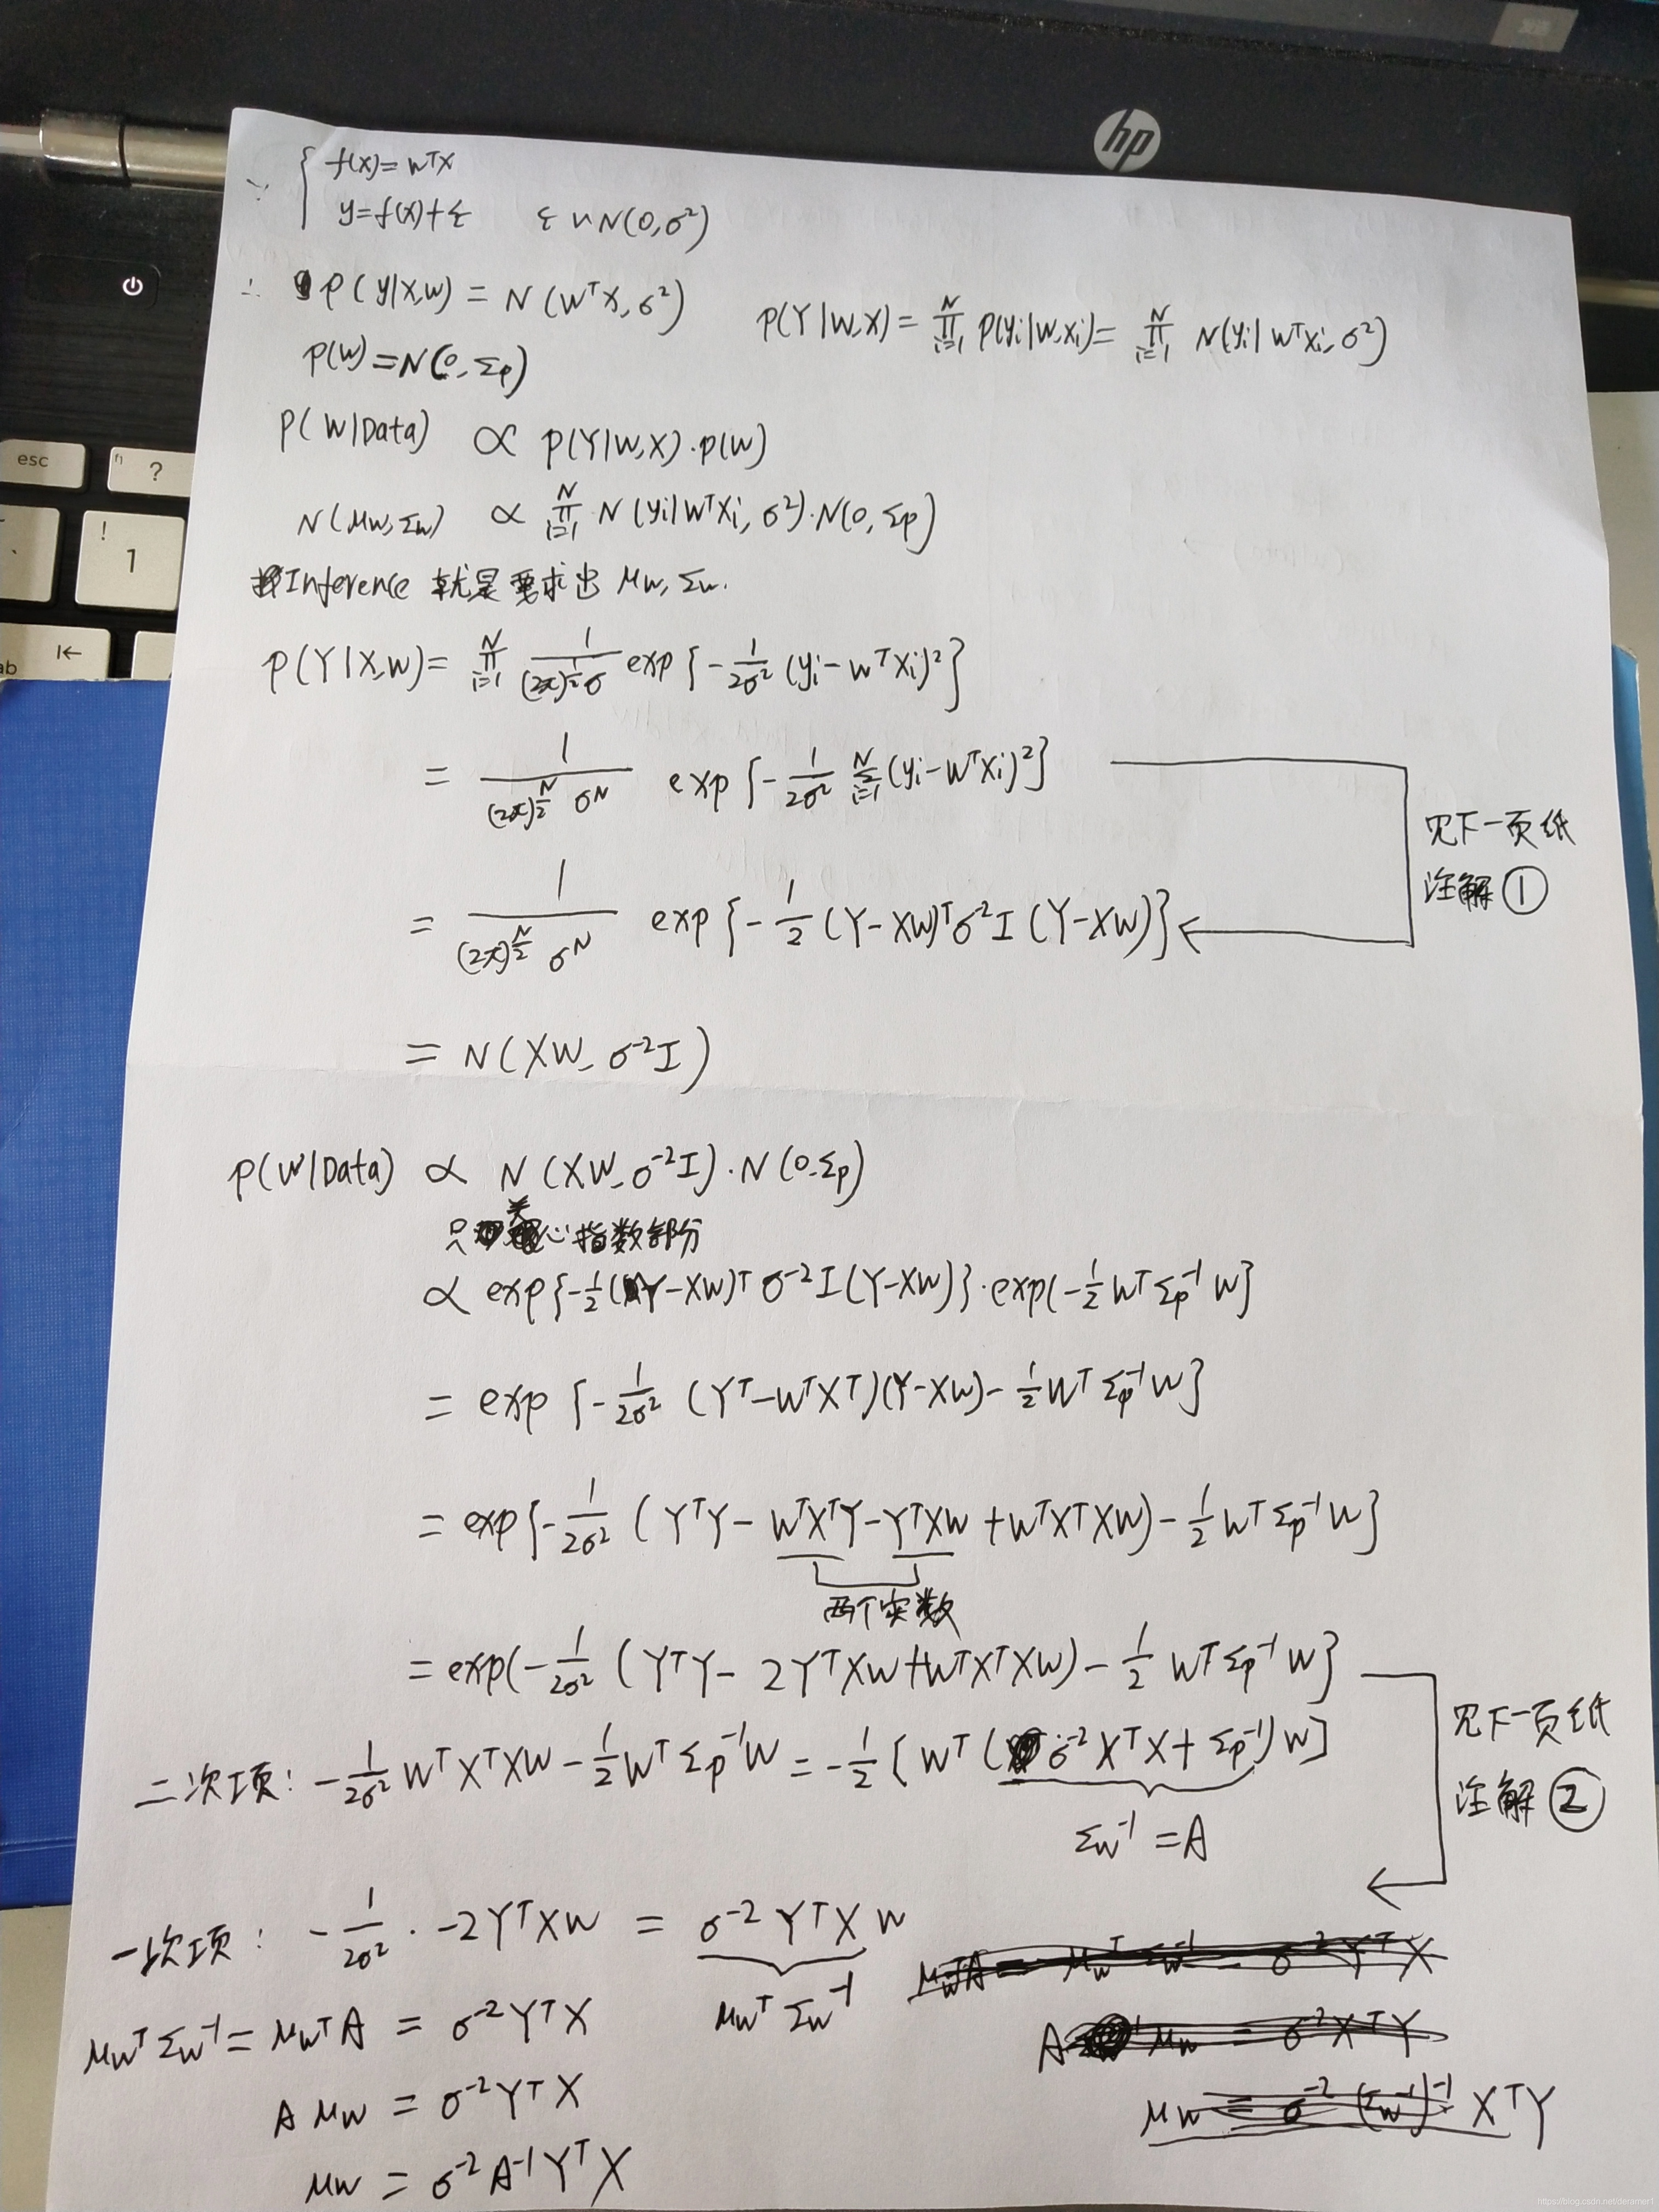 hp
∵ { f(x)=wᵀx
y=f(x)+ε ε ~ N(0,σ²)
∴ p(y|x,w) = N(wᵀx, σ²) p(Y|W,X) = ∏ᵢ₌₁ᴺ p(yi|w,xi) = ∏ᵢ₌₁ᴺ N(yi|wᵀxi, σ²)
p(w)=N(0,Σp)
p(W|Data) ∝ p(Y|W,X)·p(W)
N(μw,Σw) ∝ ∏ᵢ₌₁ᴺ N(yi|wᵀxi, σ²)·N(0,Σp)
Inference 就是要求出 μw,Σw.
p(Y|X,w) = ∏ᵢ₌₁ᴺ 1/((2π)^½ σ) exp{-1/2σ² (yi-wᵀxi)²}
= 1/((2π)^(N/2) σᴺ) exp{-1/2σ² Σᵢ₌₁ᴺ(yi-wᵀxi)²}
见下一页纸
注解①
= 1/((2π)^(N/2) σᴺ) exp{-1/2 (Y-XW)ᵀσ⁻²I(Y-XW)}
= N(XW, σ⁻²I)
p(W|Data) ∝ N(XW, σ⁻²I)·N(0,Σp)
只关心指数部分
∝ exp{-1/2(Y-XW)ᵀσ⁻²I(Y-XW)}·exp{-1/2 WᵀΣp⁻¹W}
= exp{-1/2σ² (Yᵀ-WᵀXᵀ)(Y-XW)-1/2WᵀΣp⁻¹W}
= exp{-1/2σ² (YᵀY-WᵀXᵀY-YᵀXW+WᵀXᵀXW)-1/2WᵀΣp⁻¹W}
两个实数
= exp{-1/2σ² (YᵀY-2YᵀXW+WᵀXᵀXW)-1/2WᵀΣp⁻¹W}
见下一页纸
注解②
二次项: -1/2σ² WᵀXᵀXW-1/2WᵀΣp⁻¹W = -1/2[Wᵀ(σ⁻²XᵀX+Σp⁻¹)W]
Σw⁻¹=A
一次项: -1/2σ²·-2YᵀXW = σ⁻²YᵀXW
μwᵀΣw⁻¹
μwᵀΣw⁻¹=μwᵀA = σ⁻²YᵀX
Aμw = σ⁻²YᵀX
μw = σ⁻²A⁻¹YᵀX
XᵀY
esc
?
!
1
ab
https://blog.csdn.net/deramer1